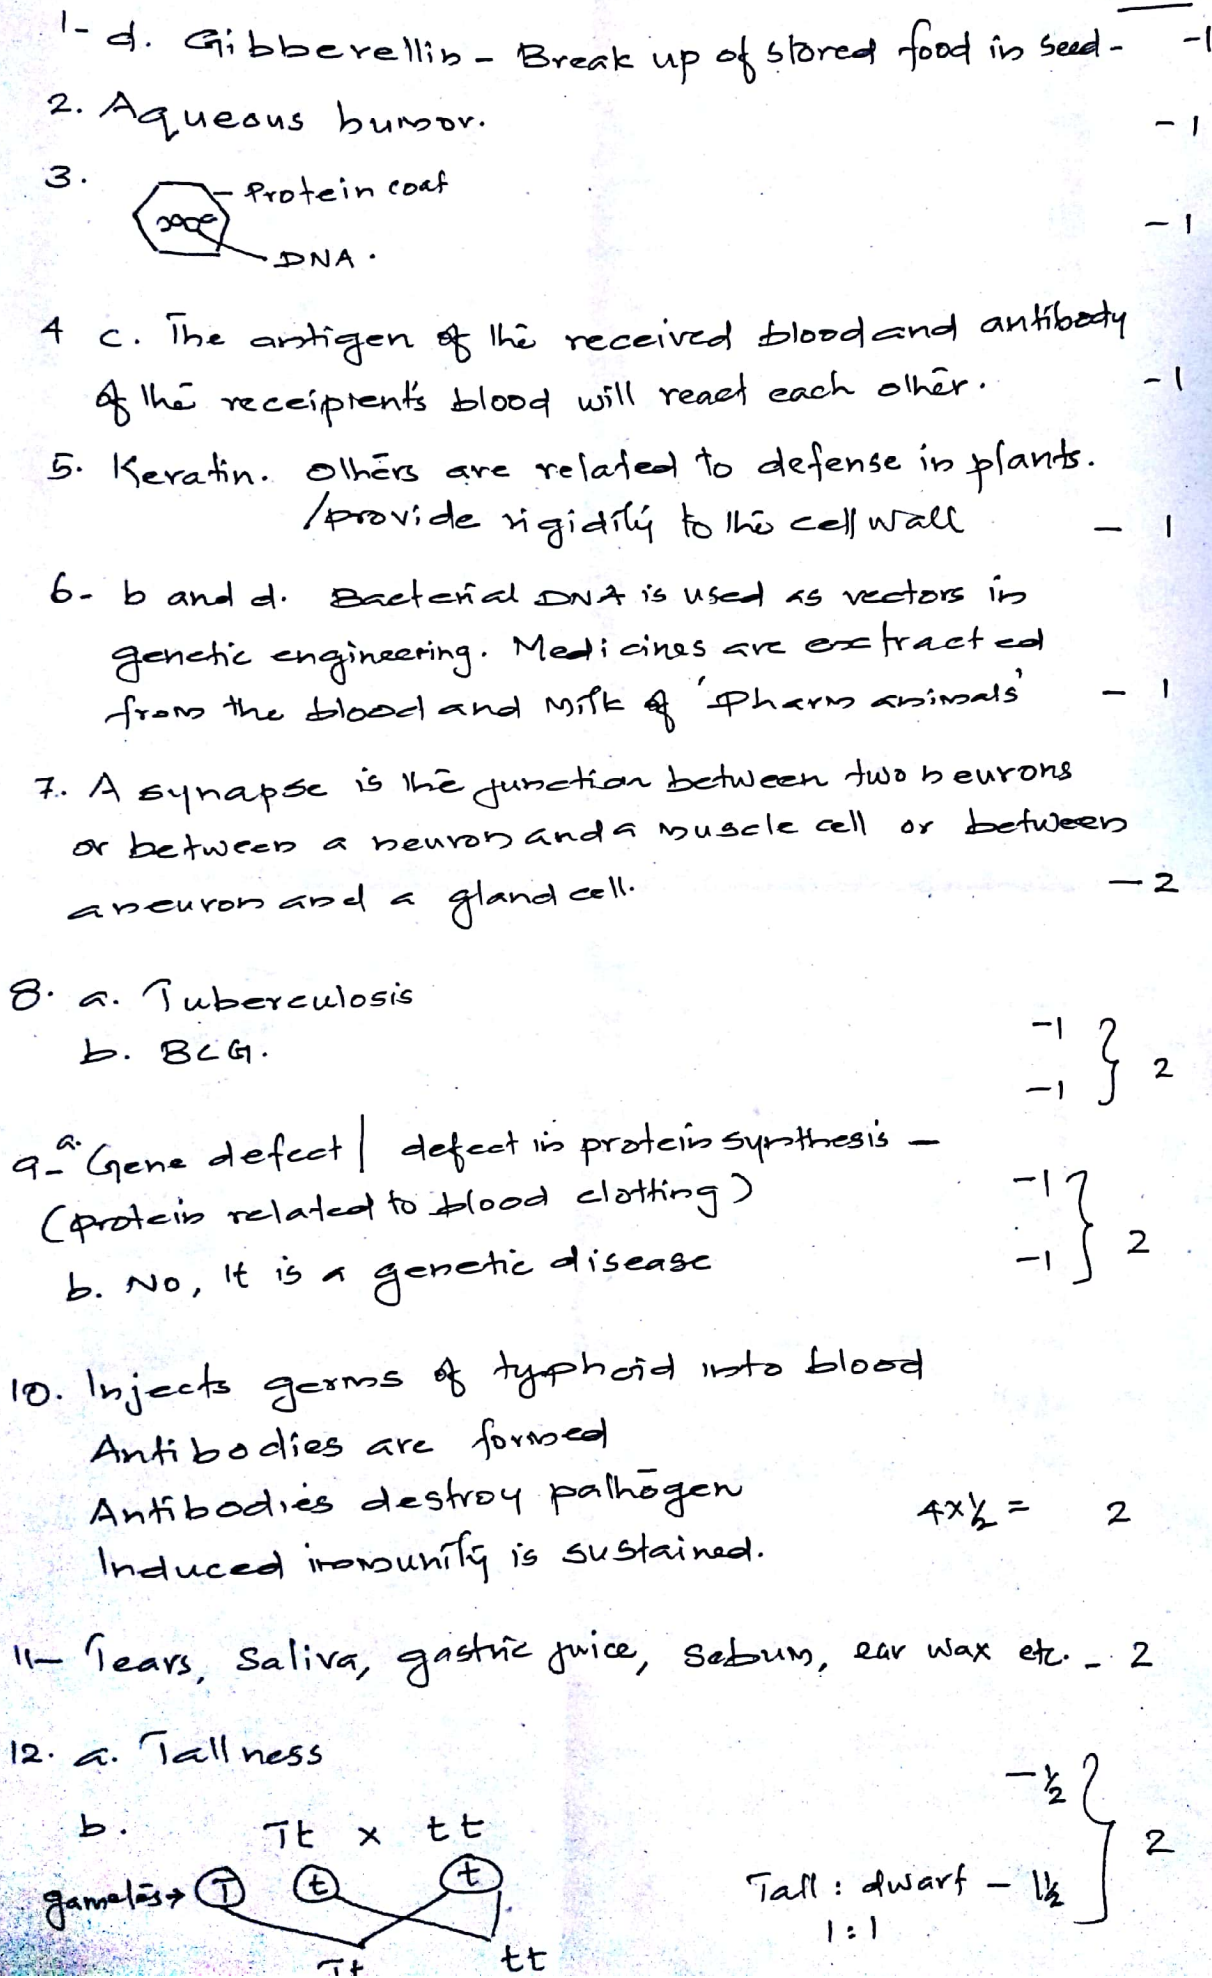 1- d. Gibberellin - Break up of stored food in seed - -1
2. Aqueous humor. - 1
3.
Protein coat
- 1
DNA.
4 c. The antigen of the received blood and antibody
of the receipient's blood will react each other. - 1
5. Keratin. Others are related to defense in plants.
/provide rigidity to the cell wall - 1
6- b and d. Bacterial DNA is used as vectors in
genetic engineering. Medicines are extracted
from the blood and milk of 'Pharm animals' - 1
7. A synapse is the junction between two neurons
or between a neuron and a muscle cell or between
a neuron and a gland cell. - 2
8. a. Tuberculosis - 1
b. BCG. - 1 } 2
9- a. Gene defect | defect in protein synthesis -
(protein related to blood clotting) - 1
b. No, It is a genetic disease - 1 } 2
10. Injects germs of typhoid into blood
Antibodies are formed
Antibodies destroy pathogen 4 x ½ = 2
Induced immunity is sustained.
11- Tears, Saliva, gastric juice, Sebum, ear wax etc. - 2
12. a. Tallness - ½
b. Tt x tt } 2
gametes → T t t Tall : dwarf - 1½
1 : 1
Tt tt